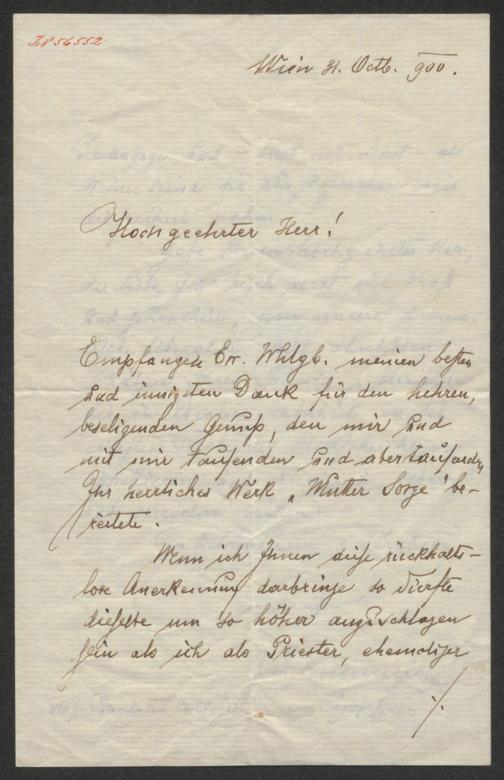 IN 56552
Wien 31. Octb. 900.
Hochgeehrter Herr!
Empfangen Ew. Whlgb. meinen besten
und innigsten Dank für den hehren,
beseligenden Genuß, den mir und
mit mir tausenden und abertausenden
Ihr herrliches Werk „Mutter Sorge" be-
reitete.
Wenn ich Ihnen diese rückhalts-
lose Anerkennung darbringe so dürfte
dieselbe um so höher anzuschlagen
sein als ich als Priester, ehemaliger
./.